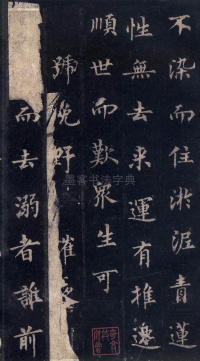 不染而住淤泥青蓮
性無去来運有推遷
順世而歎衆生可
號 摧
而去溺者誰前
墨客书法字典